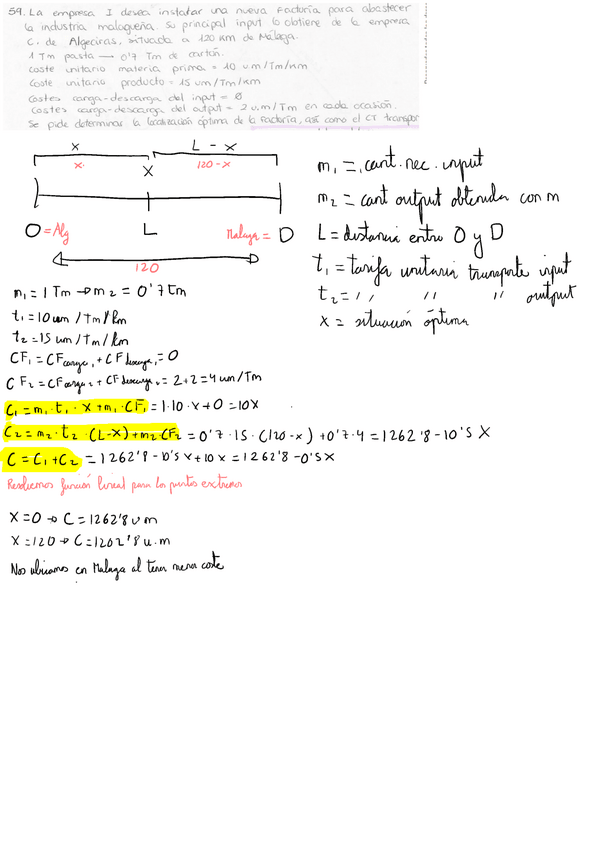 59. La empresa I desea instalar una nueva factoría para abastecer
la industria malagueña. Su principal input lo obtiene de la empresa
C. de Algeciras, situada a 120 Km de Málaga.
1 Tm pasta → 0'7 Tm de cartón.
Coste unitario materia prima = 10 u m/Tm/Km
Coste unitario producto = 15 um/Tm/Km
Costes carga-descarga del input = Ø
Costes carga-descarga del output = 2 u.m/Tm en cada ocasión.
Se pide determinar la localización óptima de la factoría, así como el CT transpor
x L - x
x. X 120-x
O = Alg L Malaga = D
120
m₁ = cant. nec. input
m₂ = cant output obtenida con m
L = distancia entre O y D
t₁ = tarifa unitaria transporte input
t₂ = ,, ,, ,, output
x = situación óptima
m₁ = 1 Tm → m₂ = 0'7 tm
t₁ = 10 um / Tm / Km
t₂ = 15 um / Tm / km
CF₁ = CF carga₁ + CF descarga₁ = 0
CF₂ = CF carga₂ + CF descarga₂ = 2+2 = 4 um/Tm
C₁ = m₁· t₁ · x + m₁ · CF₁ = 1·10·x + 0 = 10x
C₂ = m₂· t₂ · (L-x) + m₂ CF₂ = 0'7·15·(120-x) + 0'7·4 = 1262'8 - 10'5 X
C = C₁ + C₂ = 1262'8 - 10'5 x + 10 x = 1262'8 - 0'5 X
Resolvemos función lineal para los puntos extremos
X = 0 → C = 1262'8 u m
X = 120 → C = 1202'8 u.m
Nos ubicamos en Malaga al tener menor coste